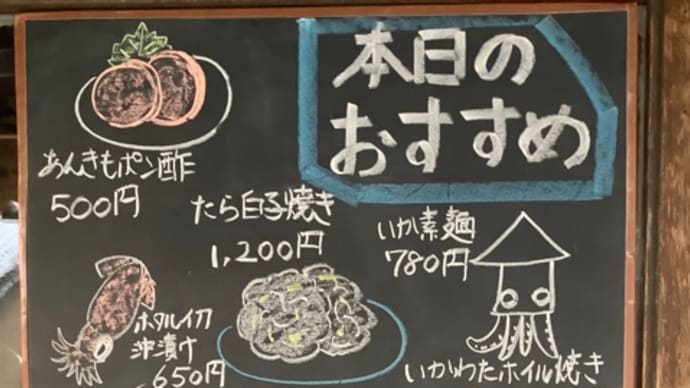 本日の
おすすめ
あんきもポン酢
500円
たら白子焼き
1,200円
いか素麺
780円
ホタルイカ
沖漬け
650円
いかわたホイル焼き